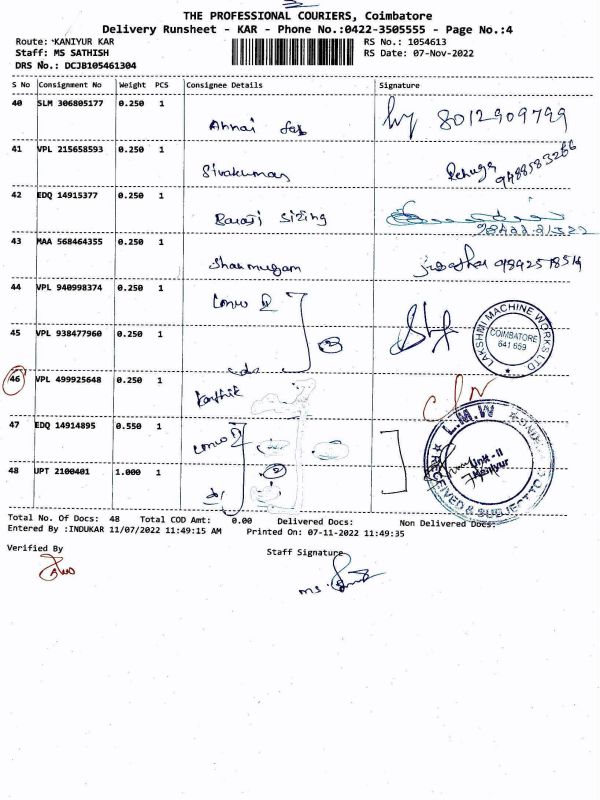 THE PROFESSIONAL COURIERS, Coimbatore
Delivery Runsheet - KAR - Phone No.:0422-3505555 - Page No.:4
Route: KANIYUR KAR
RS No.: 1054613
Staff: MS SATHISH
RS Date: 07-Nov-2022
DRS No.: DCJB105461304
S No Consignment No Weight PCS Consignee Details Signature
40 SLM 306805177 0.250 1
Annai
8012909799
41 VPL 215658593 0.250 1
Sivakumar
Renuga
9488583266
42 EDQ 14915377 0.250 1
Barati Sizing
43 MAA 568464355 0.250 1
Shanmugam
9842578514
44 VPL 940998374 0.250 1
LAKSHMI MACHINE WORKS LTD
COIMBATORE
641 659
45 VPL 938477960 0.250 1
46 VPL 499925648 0.250 1
Karthik
47 EDQ 14914895 0.550 1
L.M.W
Unit-II
Kaniyur
RECEIVED & SUBJECT TO
48 UPT 2100401 1.000 1
Total No. Of Docs: 48 Total COD Amt: 0.00 Delivered Docs: Non Delivered Docs:
Entered By :INDUKAR 11/07/2022 11:49:15 AM Printed On: 07-11-2022 11:49:35
Verified By
Staff Signature
MS.